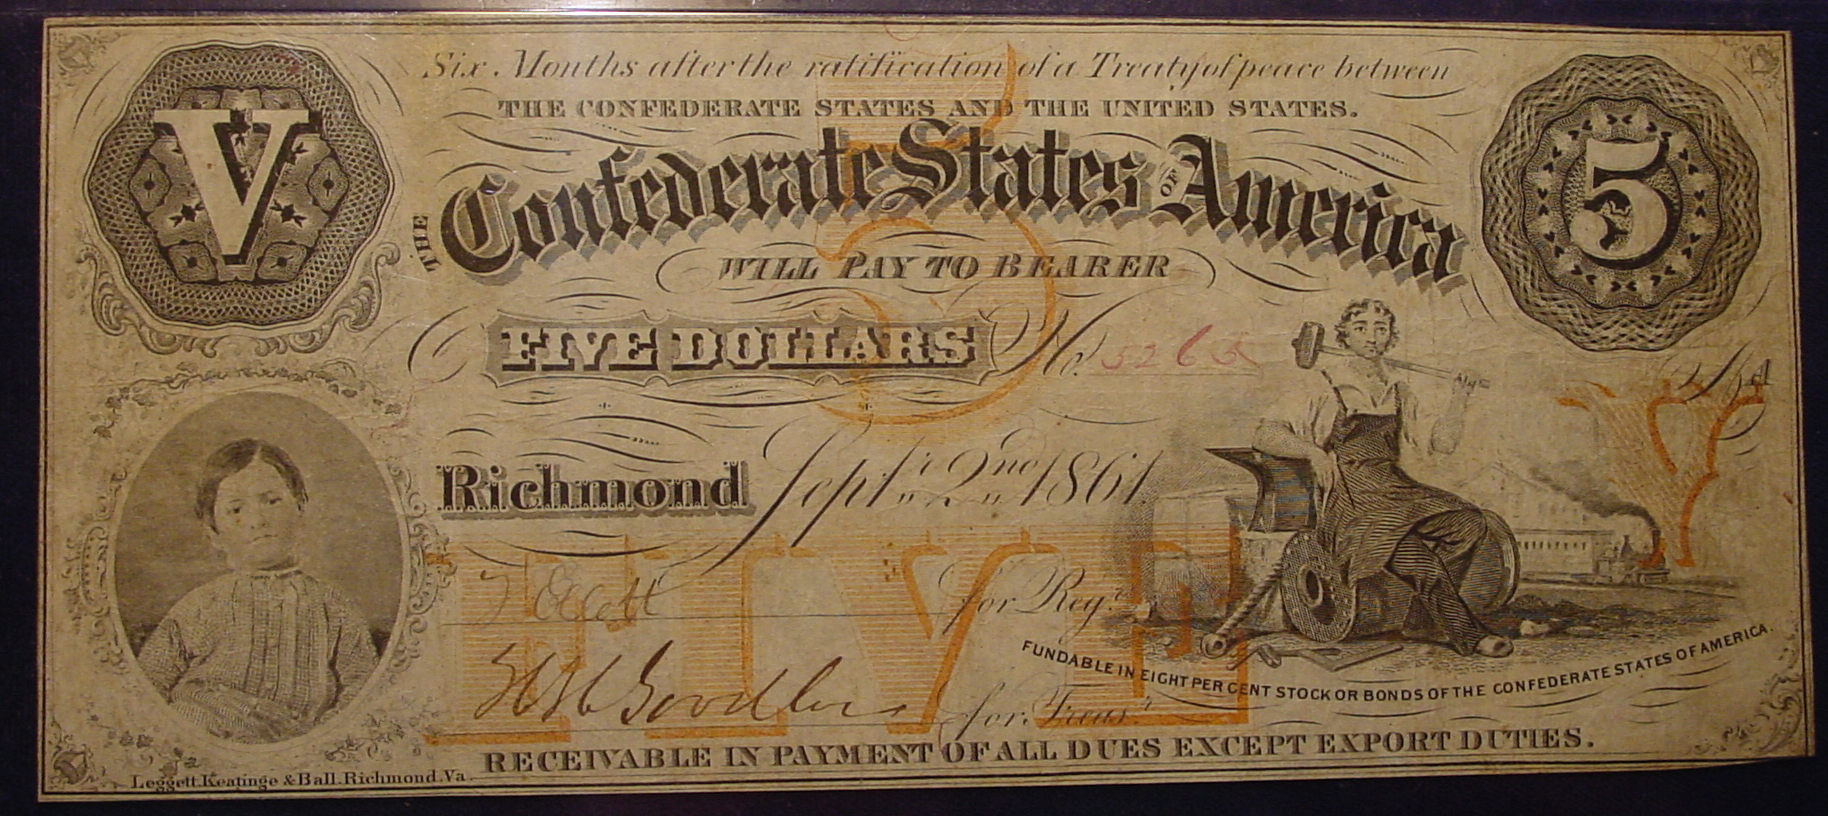 Six Months after the ratification of a Treaty of peace between
THE CONFEDERATE STATES AND THE UNITED STATES.
V
5
THE Confederate States OF America
WILL PAY TO BEARER
FIVE DOLLARS No. 5265
5
Richmond Sept.r 2nd 1861
V
FIVE
for Reg.r
for Treas.r
FUNDABLE IN EIGHT PER CENT STOCK OR BONDS OF THE CONFEDERATE STATES OF AMERICA.
RECEIVABLE IN PAYMENT OF ALL DUES EXCEPT EXPORT DUTIES.
Leggett, Keatinge & Ball. Richmond. Va.